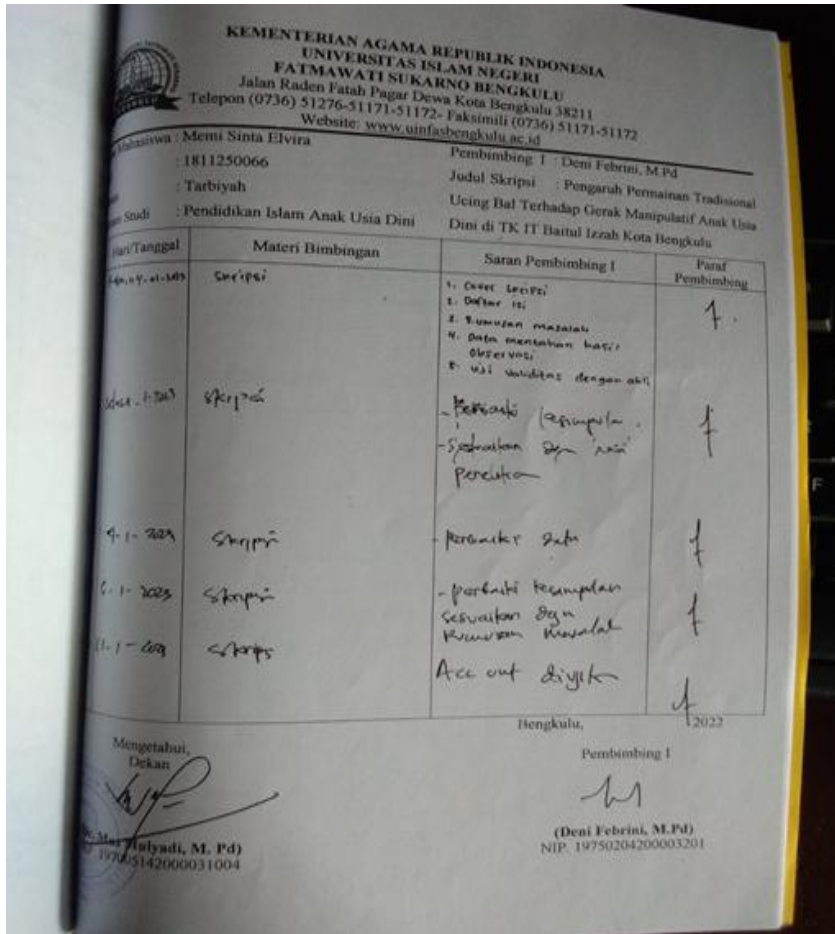 KEMENTERIAN AGAMA REPUBLIK INDONESIA
UNIVERSITAS ISLAM NEGERI
FATMAWATI SUKARNO BENGKULU
Jalan Raden Fatah Pagar Dewa Kota Bengkulu 38211
Telepon (0736) 51276-51171-51172- Faksimili (0736) 51171-51172
Website: www.uinfasbengkulu.ac.id
Mahasiswa : Memi Sinta Elvira
: 1811250066
: Tarbiyah
Studi : Pendidikan Islam Anak Usia Dini
Pembimbing I : Deni Febrini, M.Pd
Judul Skripsi : Pengaruh Permainan Tradisional
Ucing Bal Terhadap Gerak Manipulatif Anak Usia
Dini di TK IT Baitul Izzah Kota Bengkulu
Hari/Tanggal Materi Bimbingan Saran Pembimbing I Paraf Pembimbing
Skripsi
1. Cover Skripsi
2. Daftar isi
3. Rumusan masalah
4. Data mentahan hasil
observasi
5. Uji validitas dengan ahli
Skripsi
- Perbaiki kesimpulan
- Sesuaikan dgn
Penelitian
Skripsi
- Perbaiki
6-1-2023 Skripsi
- perbaiki kesimpulan
sesuaikan dgn
Rumusan masalah
Skripsi
Acc
Bengkulu, 2022
Mengetahui,
Dekan
Pembimbing I
Mulyadi, M. Pd)
197005142000031004
(Deni Febrini, M.Pd)
NIP. 19750204200003201